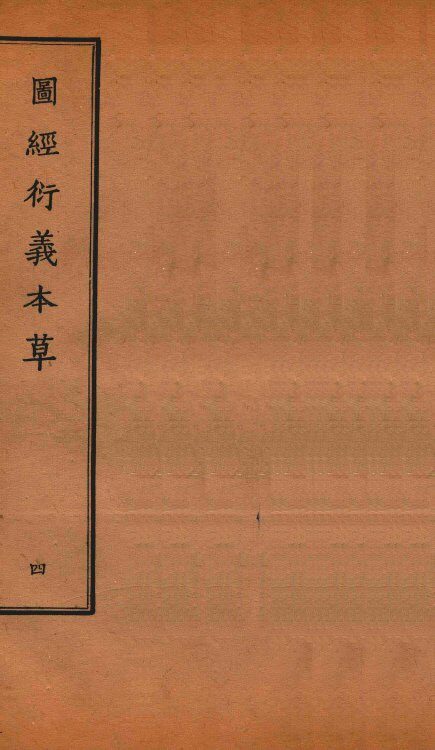 圖經衍義本草
四